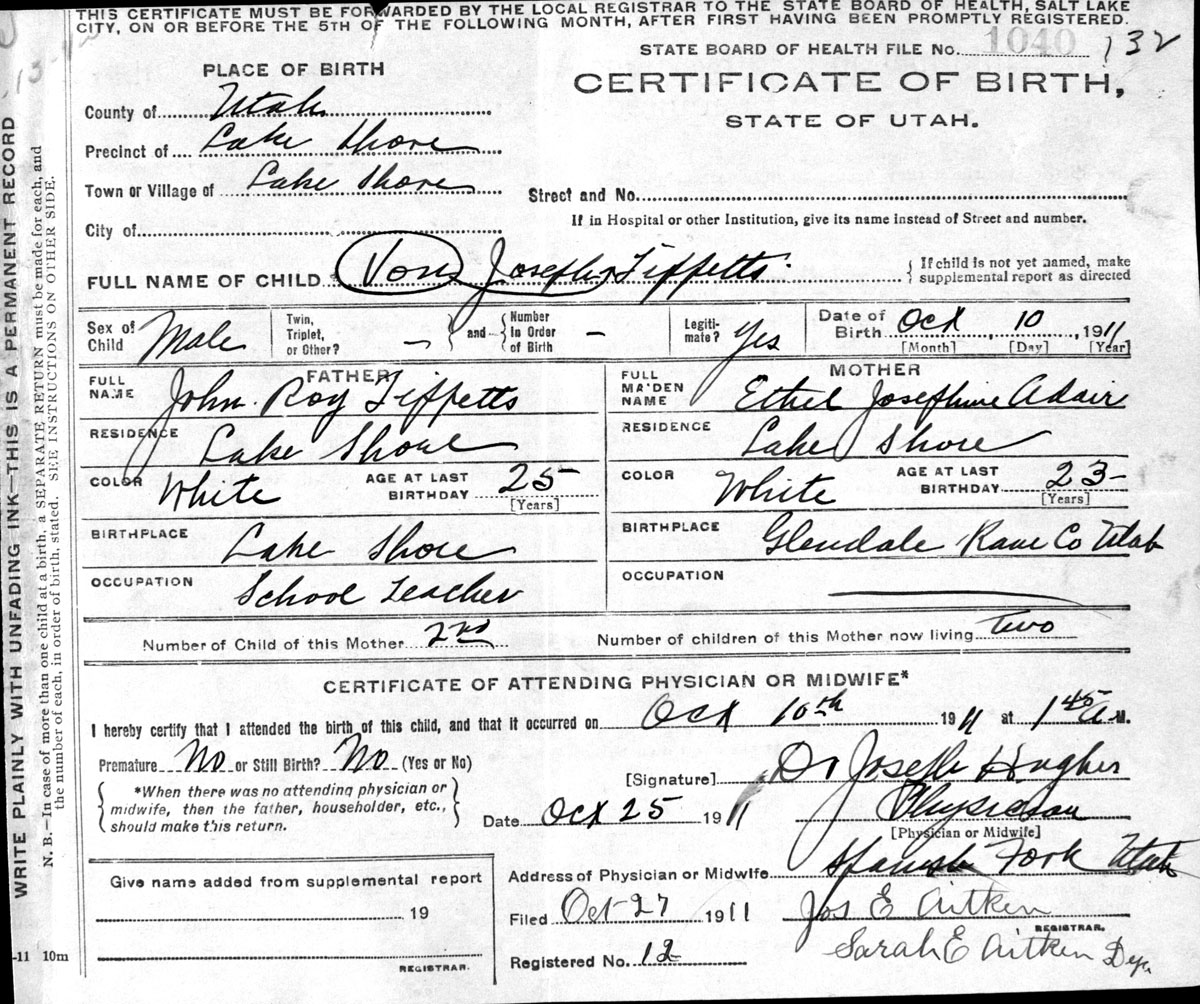 THIS CERTIFICATE MUST BE FORWARDED BY THE LOCAL REGISTRAR TO THE STATE BOARD OF HEALTH, SALT LAKE
CITY, ON OR BEFORE THE 5TH OF THE FOLLOWING MONTH, AFTER FIRST HAVING BEEN PROMPTLY REGISTERED.
STATE BOARD OF HEALTH FILE No. 1040 132
PLACE OF BIRTH
CERTIFICATE OF BIRTH,
STATE OF UTAH.
County of Utah
Precinct of Lake Shore
Town or Village of Lake Shore
Street and No.
If in Hospital or other Institution, give its name instead of Street and number.
City of
FULL NAME OF CHILD Von Joseph Tippetts
{ If child is not yet named, make
supplemental report as directed
Sex of Child Male
Twin, Triplet, or Other? —
and
Number in Order of Birth —
Legitimate? Yes
Date of Birth Oct 10, 1911
[Month] [Day] [Year]
FATHER
FULL NAME John Roy Tippetts
RESIDENCE Lake Shore
COLOR White AGE AT LAST BIRTHDAY 25
[Years]
BIRTHPLACE Lake Shore
OCCUPATION School Teacher
MOTHER
FULL MAIDEN NAME Ethel Josephine Adair
RESIDENCE Lake Shore
COLOR White AGE AT LAST BIRTHDAY 23
[Years]
BIRTHPLACE Glendale Kane Co Utah
OCCUPATION
Number of Child of this Mother 2nd Number of children of this Mother now living two
CERTIFICATE OF ATTENDING PHYSICIAN OR MIDWIFE*
I hereby certify that I attended the birth of this child, and that it occurred on Oct 10th 1911 at 1 45 A M.
Premature No or Still Birth? No (Yes or No)
[Signature] Dr Joseph Hughes
*When there was no attending physician or
midwife, then the father, householder, etc.,
should make this return.
Date Oct 25 1911 Physician
[Physician or Midwife]
Address of Physician or Midwife Spanish Fork Utah
Give name added from supplemental report
19
REGISTRAR.
Filed Oct 27 1911 Jos E Aitken
REGISTRAR.
Registered No. 12 Sarah E Aitken Dep.
-11 10m
WRITE PLAINLY WITH UNFADING INK—THIS IS A PERMANENT RECORD
N. B.—In case of more than one child at a birth, a SEPARATE RETURN must be made for each, and
the number of each, in order of birth, stated. SEE INSTRUCTIONS ON OTHER SIDE.